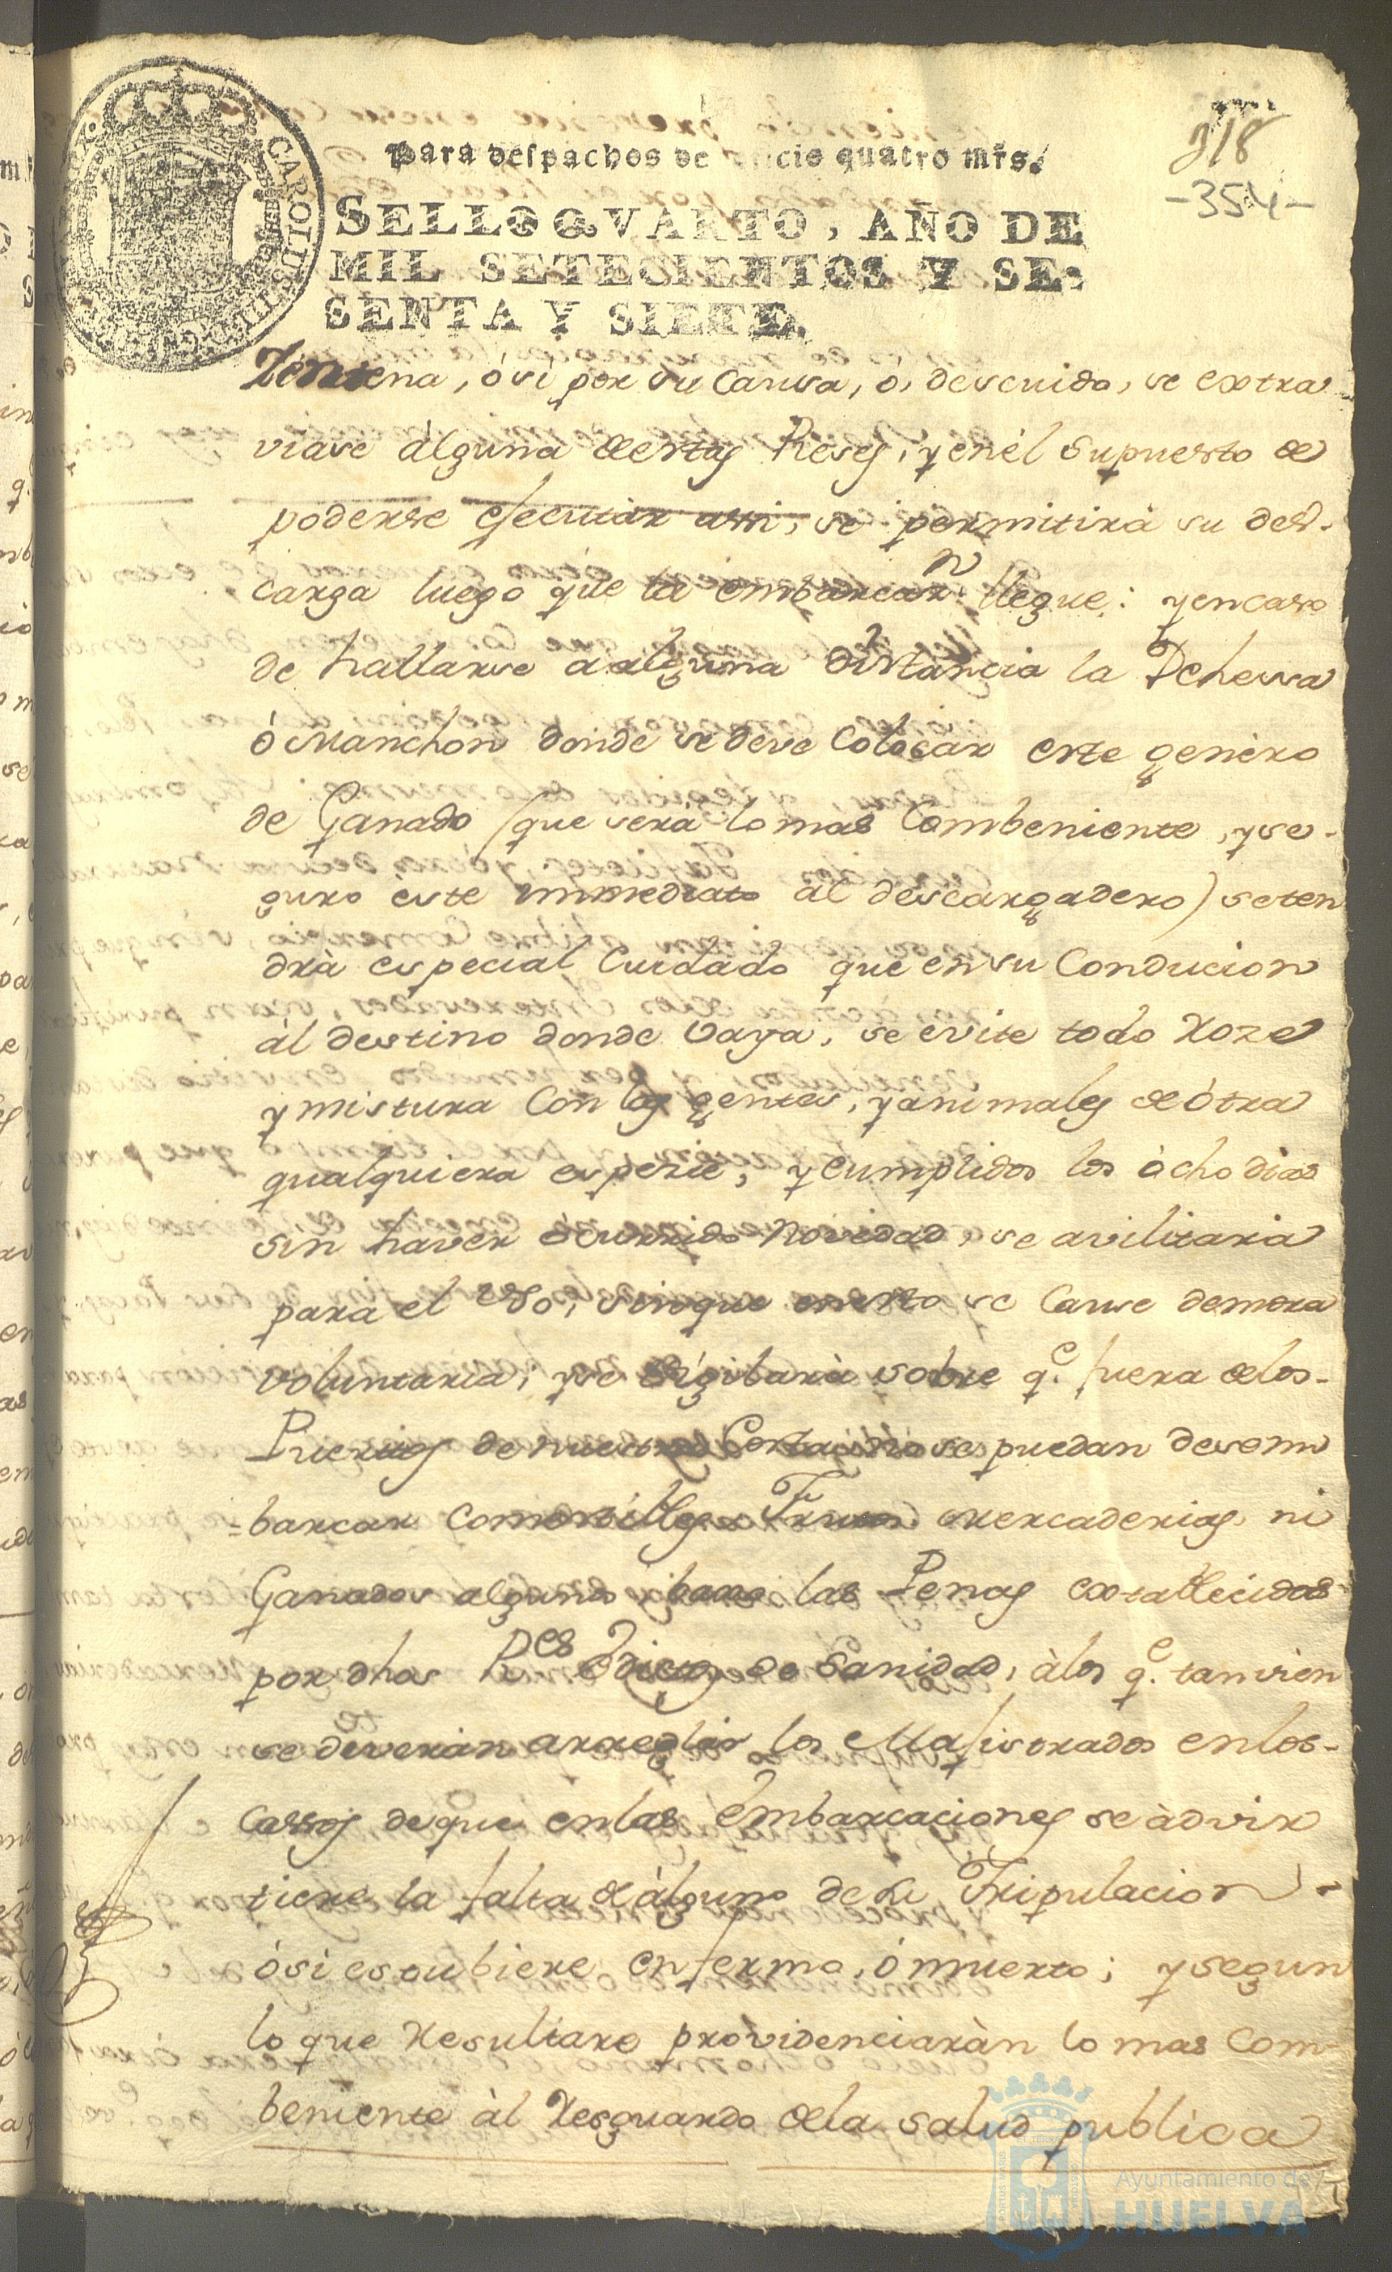 318
-354-
CAROLUS III
Para despachos de oficio quatro mrs.
SELLO QVARTO, AÑO DE
MIL SETECIENTOS Y SE-
SENTA Y SIETE.
Zentena, ó si por su Causa, ó, descuido, se extra
viase álguna de estas Reses, y en él Supuesto de
poderse efecutar assi, se permitirá su des-
carga luego que la embarcaⁿ. llegue: y encaso
de hallarse a alguna distancia la Dehessa
ó Manchon donde se deve Colocar este genero
de Ganado (que será lo mas Combeniente, y se-
guro este immediato al descargadero) se ten
drà especial Cuidado que en su Conducion
ál destino donde vaya, se evite todo Roze
y mistura Con las gentes, y animales de ótra
qualquiera especie, y cumplidos los ócho dias
sin haver ócurrido Novedad, se avilitará
para el uso, sinque en esto se Cause demora
voluntaria, y se vigilarà sobre q.e fuera de los-
Puertos de nuestra Costa, no se puedan desem
=barcar Comestibles, Frutos, mercaderias, ni
Ganados algunos baxo las Penas extablecidas
por dhos R.es Edictos de Sanidad, à los q.e tanvien
se deverán arreglar los Malisorados en los-
Cassos de que en las Embarcaciones se àdvir
tiere la falta de álguno de su Tripulacion -
ó si estubiere enfermo, ó muerto; y segun
lo que Resultare providenciaràn lo mas Com-
beniente àl Resguardo de la Salud publica
Ayuntamiento de
HUELVA